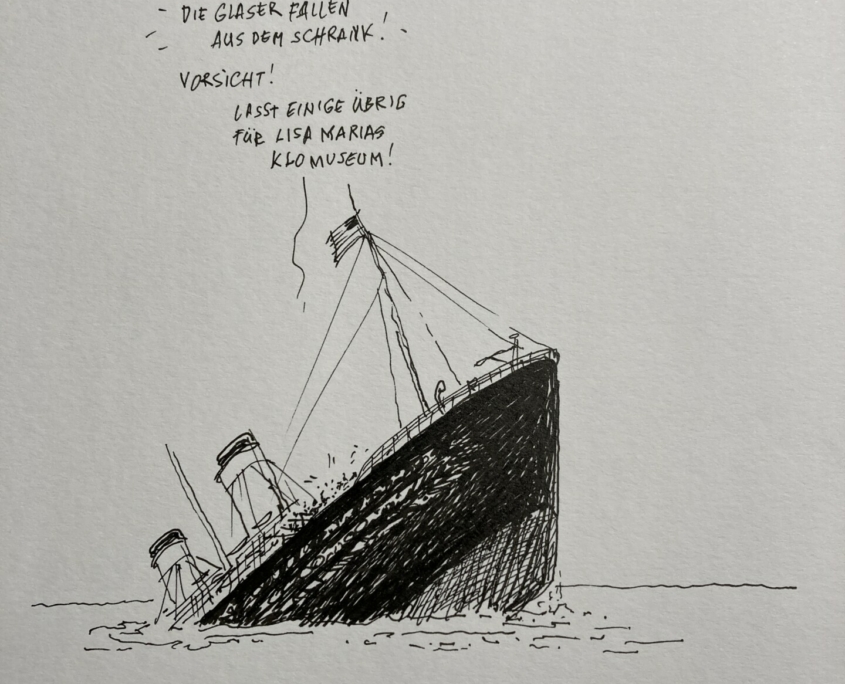 - DIE GLÄSER FALLEN
AUS DEM SCHRANK!
VORSICHT!
LASST EINIGE ÜBRIG
FÜR LISA MARIAS
KLOMUSEUM!